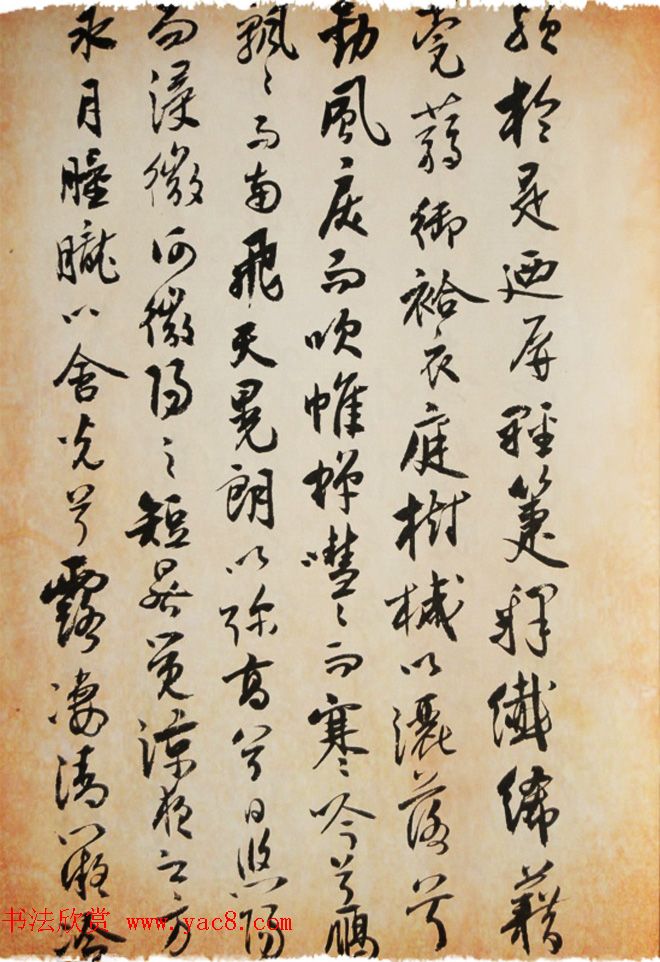 殞於是迺屏輕箑釋纖絺藉
莞蒻御袷衣庭樹槭以灑落兮
勁風戾而吹帷蟬嘒〻而寒吟兮鴈
飄〻而南飛天晃朗以弥高兮日悠陽
而浸微何微陽之短晷覺涼夜之方
永月朣朧以含光兮露凄清以凝冷
书法欣赏 www.yac8.com